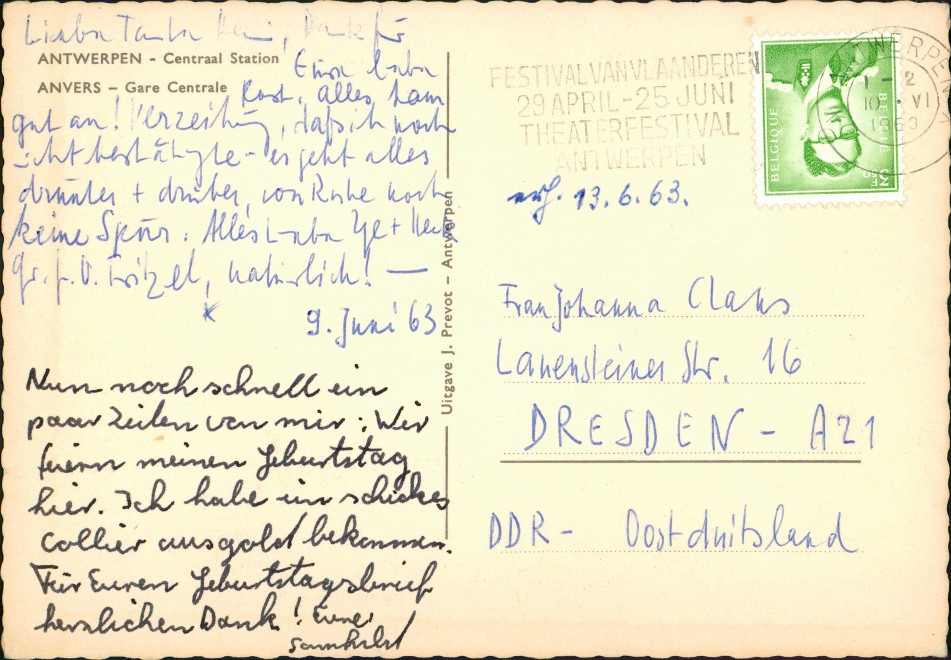 Liebe Tante Heni, Dank für
ANTWERPEN - Centraal Station
Eure liebe
ANVERS - Gare Centrale
Post, alles kam
gut an! Verzeihung, daß ich noch
nicht bestätigte - es geht alles
drunter + drüber, von Ruhe noch
keine Spur. Alles Liebe
Gr. natürlich! —
9. Juni 63
Nun noch schnell ein
paar Zeilen von mir: Wir
feiern meinen Geburtstag
hier. Ich habe ein schickes
Collier aus Gold bekommen.
Für Euren Geburtstagsbrief
herzlichen Dank! Eure
Uitgave J. Prevot - Antwerpen
FESTIVAL VAN VLAANDEREN
29 APRIL - 25 JUNI
THEATERFESTIVAL
ANTWERPEN
ANTWERPEN
10 VI
1963
BELGIQUE
BELGIE
3F
erh. 13.6.63.
Frau Johanna Claus
Lauensteiner Str. 16
DRESDEN - A21
DDR - Oostduitsland